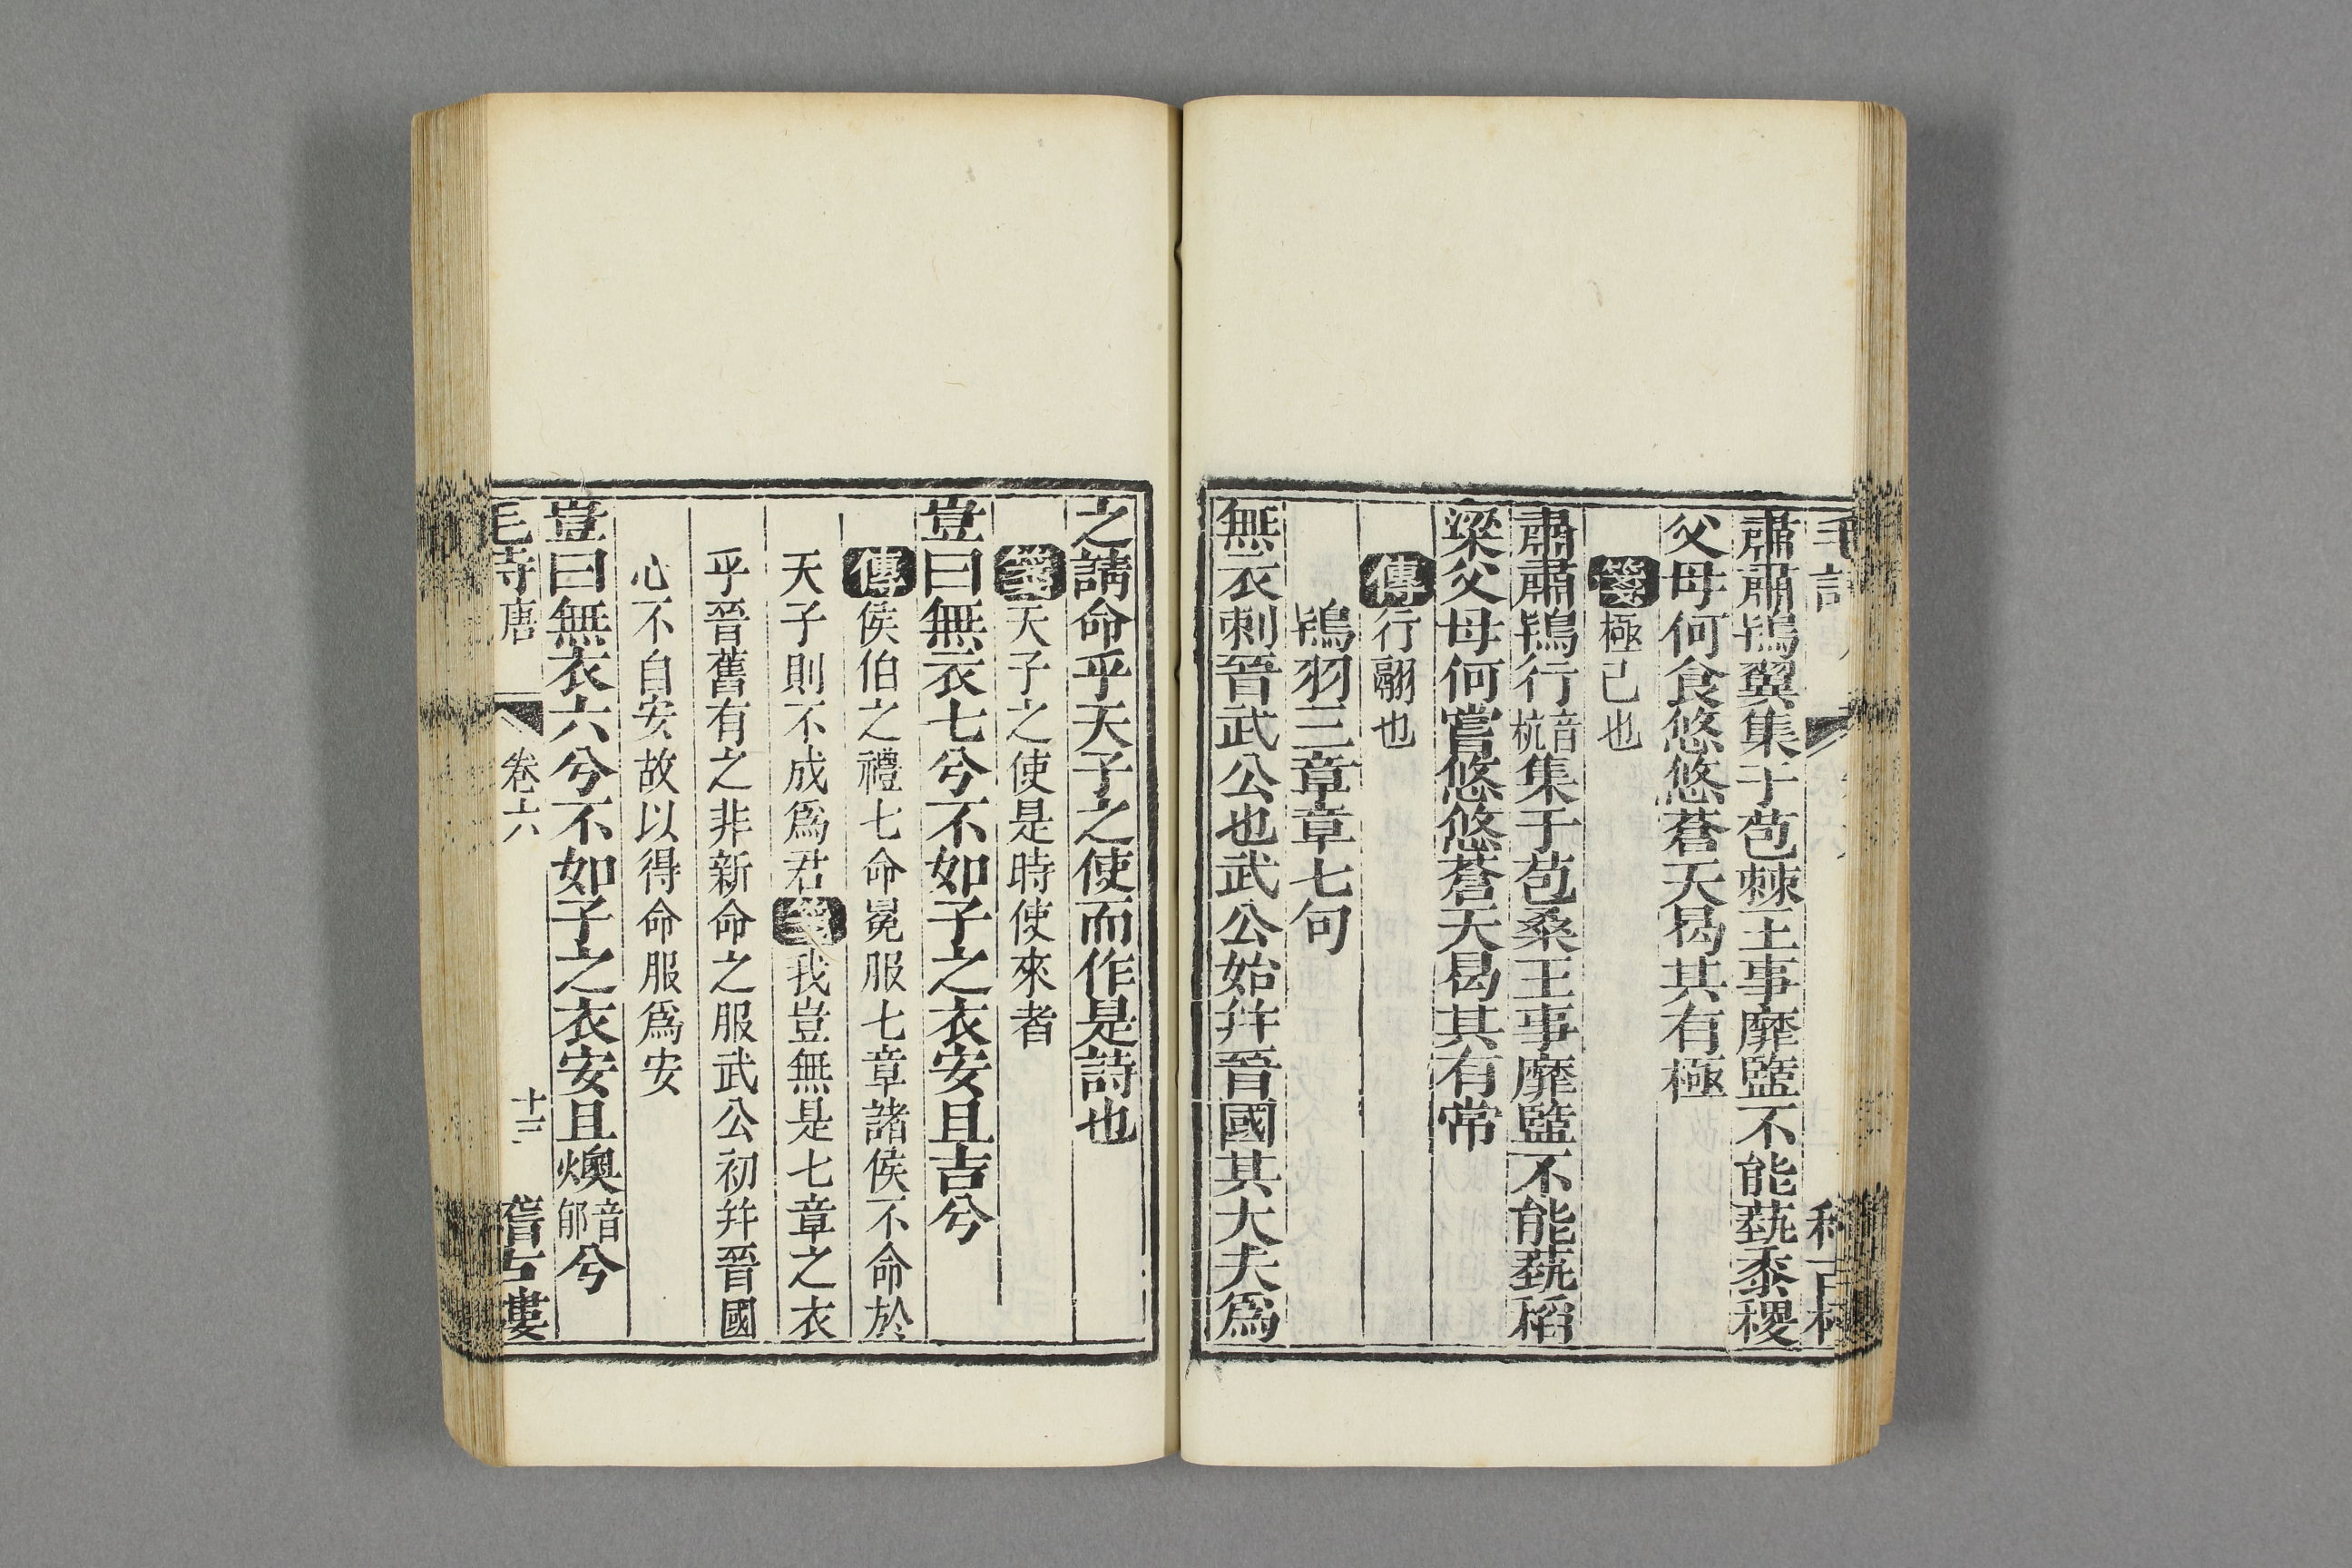 肅肅鴇翼集于苞棘王事靡盬不能蓺黍稷
父母何食悠悠蒼天曷其有極
箋極已也
肅肅鴇行音杭集于苞桑王事靡盬不能蓺稻
粱父母何嘗悠悠蒼天曷其有常
傳行翮也
鴇羽三章章七句
無衣刺晉武公也武公始并晉國其大夫爲
之請命乎天子之使而作是詩也
箋天子之使是時使來者
豈曰無衣七兮不如子之衣安且吉兮
傳侯伯之禮七命冕服七章諸侯不命於
天子則不成爲君箋我豈無是七章之衣
乎晉舊有之非新命之服武公初并晉國
心不自安故以得命服爲安
豈曰無衣六兮不如子之衣安且燠音郁兮
毛詩唐 卷六 十三 稽古樓